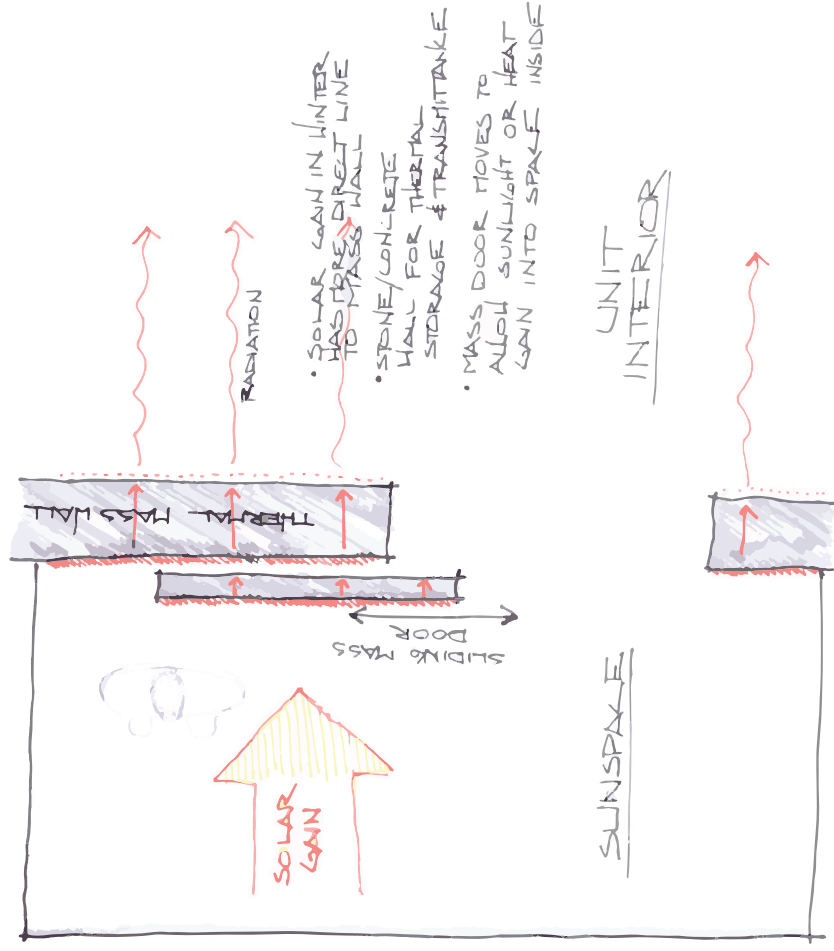 • SOLAR GAIN IN WINTER
HAS MORE DIRECT LINE
TO MASS WALL
• STONE/CONCRETE
WALL FOR THERMAL
STORAGE & TRANSMITTANCE
• MASS DOOR MOVES TO
ALLOW SUNLIGHT OR HEAT
GAIN INTO SPACE INSIDE
RADIATION
UNIT
INTERIOR
THERMAL MASS WALL
SLIDING MASS
DOOR
SOLAR
GAIN
SUNSPACE